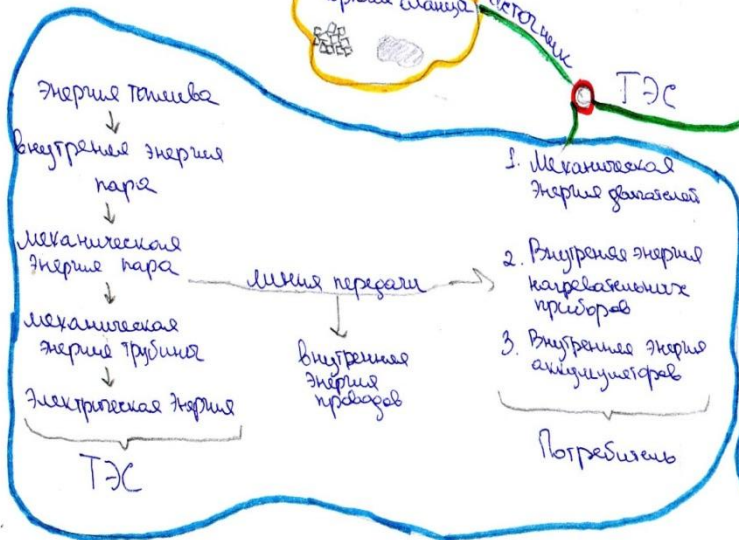 источник
ТЭС
Энергия топлива
внутреняя энергия
пара
механическая
энергия пара
механическая
энергия трубины
Электрическая Энергия
ТЭС
линия передачи
внутренняя
энергия
проводов
1. Механическая
Энергия двигателей
2. Внутреняя энергия
нагревательных
приборов
3. Внутренняя энергия
аккумуляторов
Потребитель